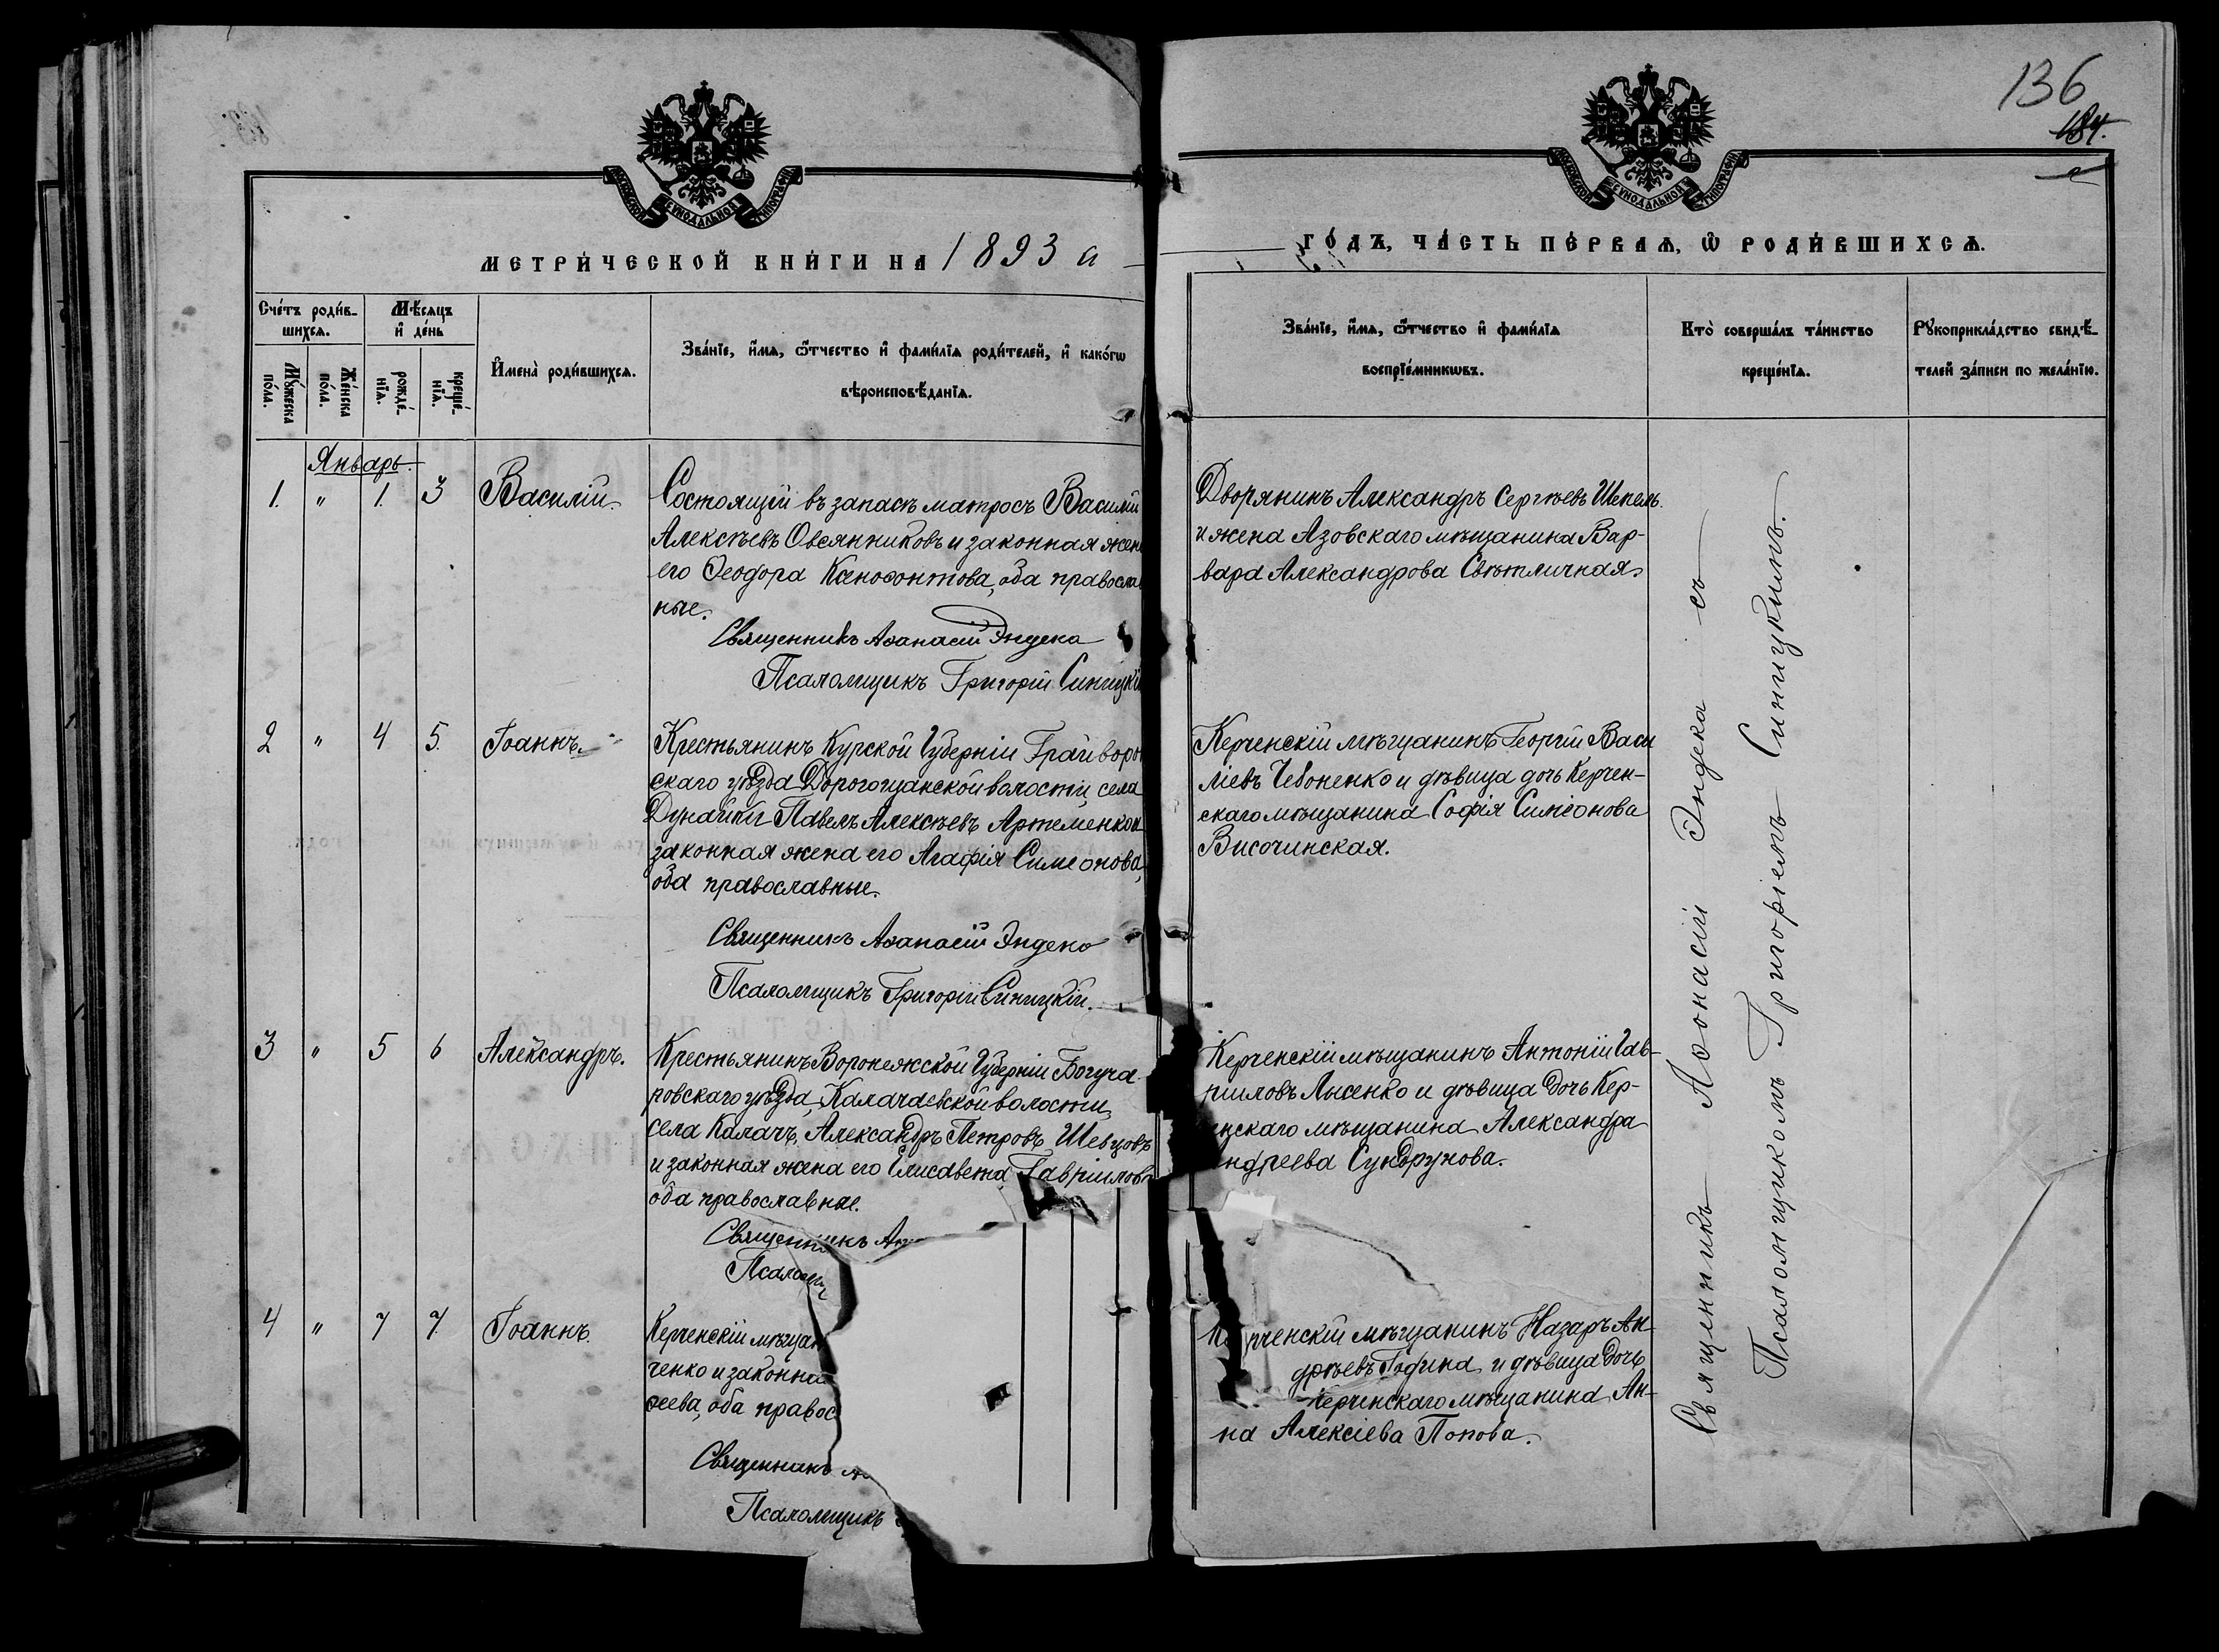 136
184.
МОСКОВСКОЙ СѴНОДАЛЬНОЙ ТИПОГРАФІИ
МОСКОВСКОЙ СѴНОДАЛЬНОЙ ТИПОГРАФІИ
МЕТРИ́ЧЕСКОЙ КНИ́ГИ НА 1893 й
ГО́ДЪ, ЧА́СТЬ ПЕ́РВАѦ, Ѡ҆ РОДИ́ВШИХСѦ.
Сче́тъ роди́в-
шихсѧ.
Мꙋ́жеска
по́ла.
Же́нска
по́ла.
Мѣ́сѧцъ
и҆ де́нь
рожде́-
нїѧ.
креще́-
нїѧ.
И҆мена̀ роди́вшихсѧ.
Зва́нїе, и҆́мѧ, ѻ҆́тчество и҆ фами́лїѧ роди́телей, и҆ како́гѡ
вѣроисповѣ́данїѧ.
Зва́нїе, и҆́мѧ, ѻ҆́тчество и҆ фами́лїѧ
воспрїе́мникѡвъ.
Кто̀ соверша́лъ та́инство
креще́нїѧ.
Рꙋкоприкла́дство свидѣ́-
телей за́писи по жела́нїю.
Январь.
1. " 1. 3 Василій.
Состоящій въ запасѣ матросъ Василій
Алексѣевъ Овсянниковъ и законная жен
его Ѳеодора Ксенофонтова, оба правосла
ные.
Священникъ Аѳанасій Эндека
Псаломщикъ Григорій Синицкій
Дворянинъ Александръ Сергѣевъ Шепель
и жена Азовскаго мѣщанина Вар-
вара Александрова Свѣтличная.
2 " 4 5. Іоаннъ.
Крестьянинъ Курской Губерніи Грайворо
скаго уѣзда Дорогощанской волости, села
Дунайки Павелъ Алексѣевъ Артеменко и
законная жена его Агафія Симеонова,
оба православные.
Священникъ Аѳанасій Эндека
Псаломщикъ Григорій Синицкій.
Керченскій мѣщанинъ Георгій Васи
ліевъ Чебоненко и дѣвица дочь Керчен-
скаго мѣщанина Софія Симеонова
Височинская.
3 " 5 6 Александръ.
Крестьянинъ Воронежской Губерніи Богуча-
ровскаго уѣзда, Калачаевской волости,
села Калачъ, Александръ Петровъ Шевцовъ
и законная жена его Елисавета Гавріилов
оба православные.
Священникъ Аѳ
Псаломщ
Керченскій мѣщанинъ Антоній Гав-
ріиловъ Лысенко и дѣвица дочь Кер-
нскаго мѣщанина Александра
ндреева Сундрукова.
4 " 7 7. Іоаннъ.
Керченскій мѣщан
ченко и законна
ѳеева, оба правос
Священникъ
Псаломщикъ
Керченскій мѣщанинъ Назаръ Ан-
дреевъ Година и дѣвица дочь
Керченскаго мѣщанина Ан-
на Алексіева Попова.
Священникъ Аѳонасій Эндека съ
Псаломщикомъ Григоріемъ Синицкимъ.